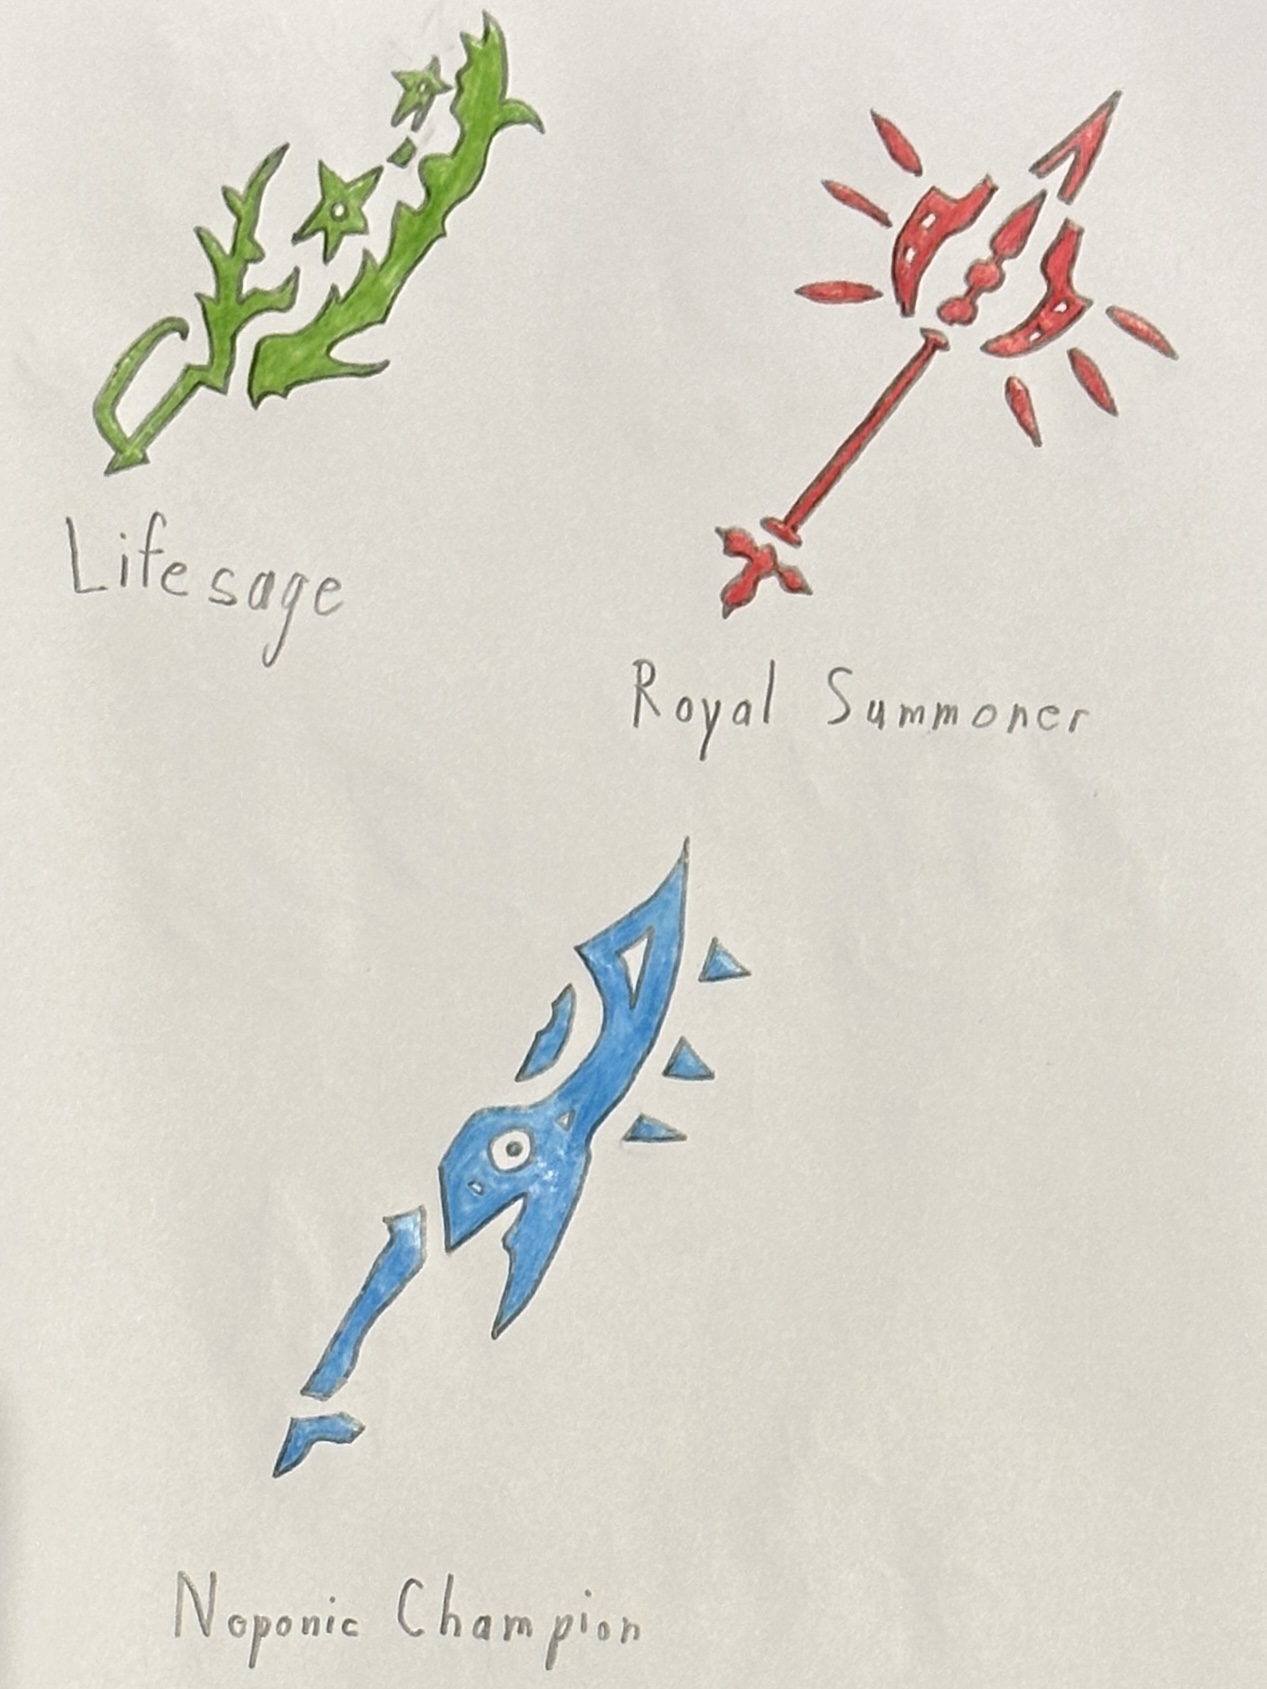 Lifesage
Royal Summoner
Noponic Champion